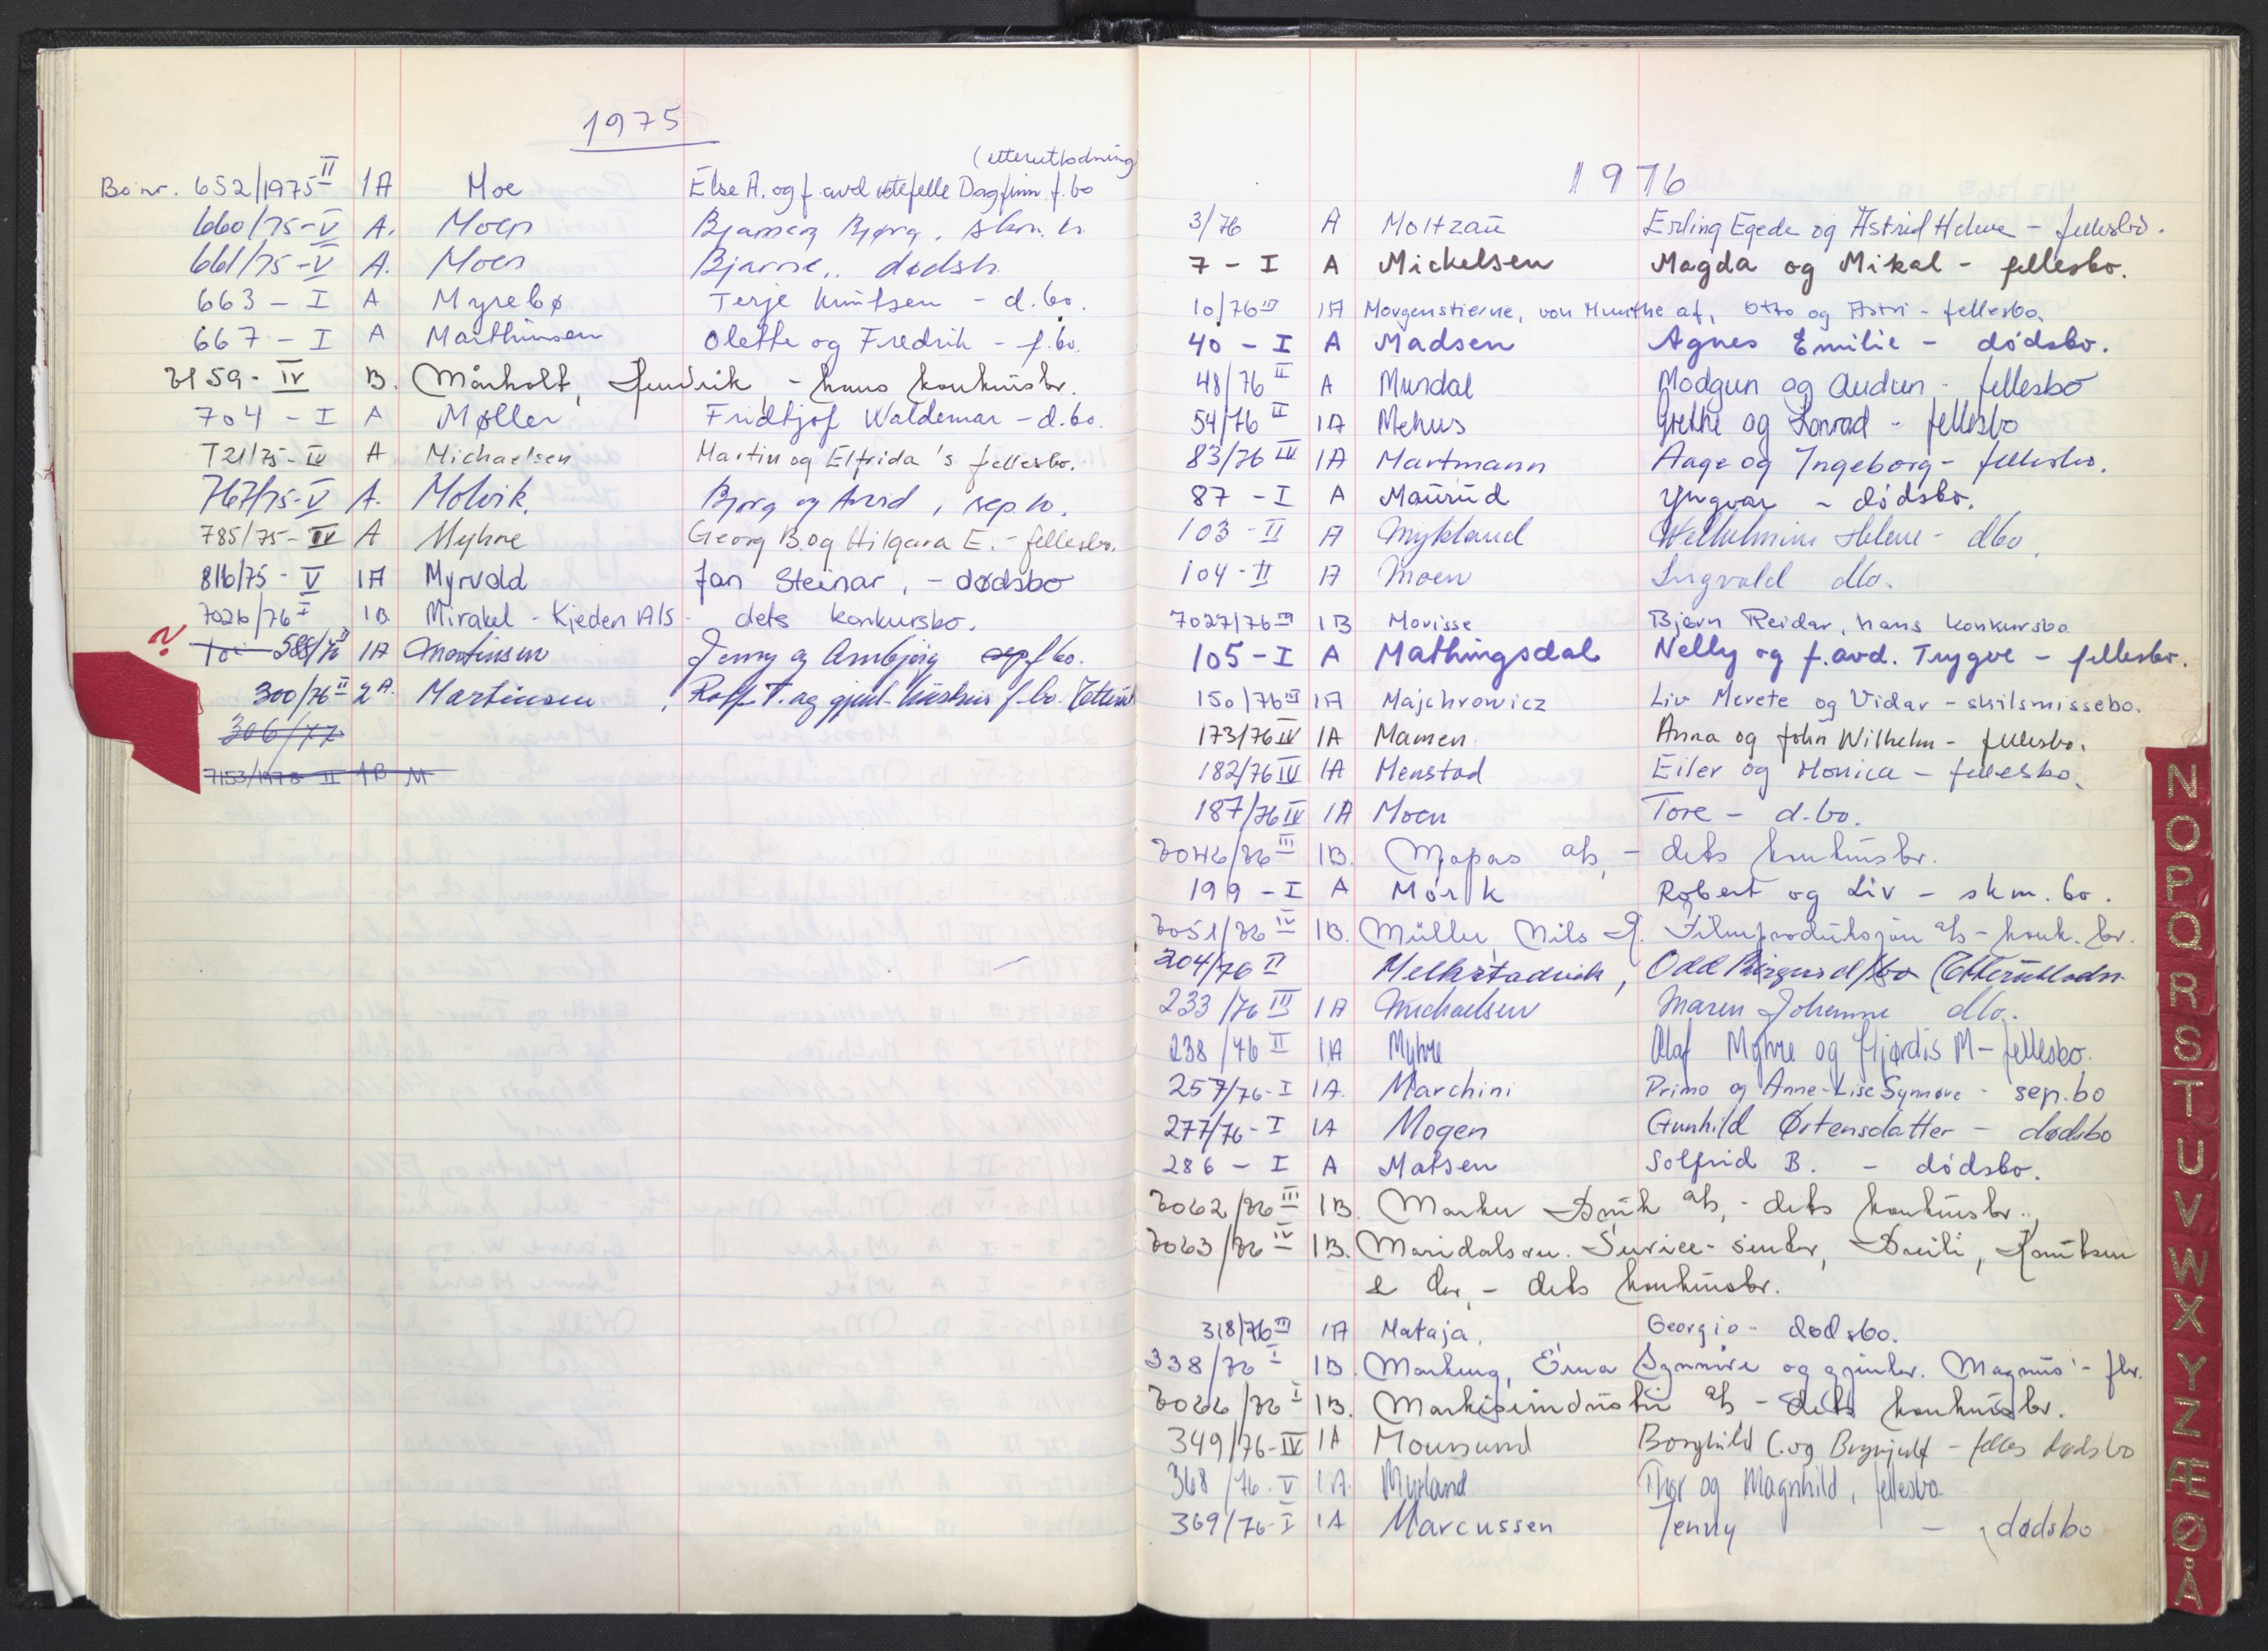 1975
(etterutlodning)
Bo nr. 652/1975 II 1A Moe Else A. og f. avd ektefelle Dagfinn f. bo
660/75-V A. Moen Bjarne og Bjørg, skm. b.
661/75-V A. Moen Bjarne, dødsb.
663 - I A Myrebø Terje Knutsen - d.bo.
667 - I A Marthinsen Olette og Fredrik - f.bo.
7159- IV B. Mårholt, Hendrik - hans konkursbo.
704 - I A Møller Fridtjof Waldemar - d.bo.
721/75-IV A Michaelsen Martin og Elfrida's fellesbo.
767/75-V A. Molvik, Bjørg og Arvid, sep.bo.
785/75-IV A Myhre Georg B. og Hilgara E. - fellesbo.
816/75 - V 1A Myrvold Jan Steinar, - dødsbo
7026/76 I 1B Mirakel - Kjeden A/S - dets konkursbo.
? 588/76 II 1A Martinsen Jenny og Arnbjørg sep f bo.
300/76 II 2A. Martinsen, Rolf T. og gjenl. hustrus f.bo.
306/77
7153/1978 II 1B M
1976
3/76 A Moltzau Erling Egede og Astrid Helene - fellesbo.
7 - I A Mickelsen Magda og Mikal - fellesbo.
10/76 III 1A Morgenstierne, von Munthe af, Otto og Astri - fellesbo.
40 - I A Madsen Agnes Emilie - dødsbo.
48/76 II A Mundal Modgun og Audun - fellesbo
54/76 II 1A Mehus Grethe og Konrad - fellesbo
83/76 IV 1A Martmann Aage og Ingeborg - fellesbo.
87 - I A Maurud Yngvar - dødsbo.
103 - II A Mykland Wilhelmine Helene - dbo.
104 - II A Moen Ingvald dbo.
7027/76 III 1B Morisse Bjørn Reidar, hans konkursbo
105 - I A Mathingsdal Nelly og f. avd. Trygve - fellesbo.
150/76 III 1A Majchrowicz Liv Merete og Vidar - skilsmissebo.
173/76 IV 1A Mamen Anna og John Wilhelm - fellesbo.
182/76 IV 1A Menstad Eiler og Monica - fellesbo.
187/76 IV 1A Moen Tore - d.bo.
7046/76 III 1B. Mopas a/s, - dets konkursbo.
199 - I A Mørk Robert og Liv - skm. bo.
7051/76 IV 1B. Müller, Nils R. Filmproduksjon a/s - konk. bo.
204/76 II Melkstadvik, Odd Birger d/bo (Etterutlodn.
233/76 III 1A Michaelsen Maren Johanne dbo.
238/76 II 1A Myhre Olaf Myhre og Hjørdis M - fellesbo.
257/76-I 1A. Marchini Primo og Anne-Lise Synnøve - sep.bo
277/76-I 1A Mogen Gunhild Østensdatter - dødsbo
286 - I A Matsen Solfrid B. - dødsbo.
7062/76 III 1B. Marker Bruk a/s, - dets konkursbo.
7063/76 IV 1B. Maridalsvn. Service-senter, Knutsen
& Co, - dets konkursbo.
318/76 III 1A Mataja, Georgio - dødsbo.
338/76 I 1B. Markeng, Erna Synnøve og gjenlev. Magnus' - fbo.
7066/76 I 1B. Markiseindustri a/s - dets konkursbo.
349/76-IV 1A Mousund Borghild C. og Brynjulf - felles dødsbo
368/76-V 1A Myrland Thor og Magnhild, fellesbo
369/76-I 1A Marcussen Jenny - dødsbo
N
O
P
Q
R
S
T
U
V
W
X
Y
Z
Æ
Ø
Å